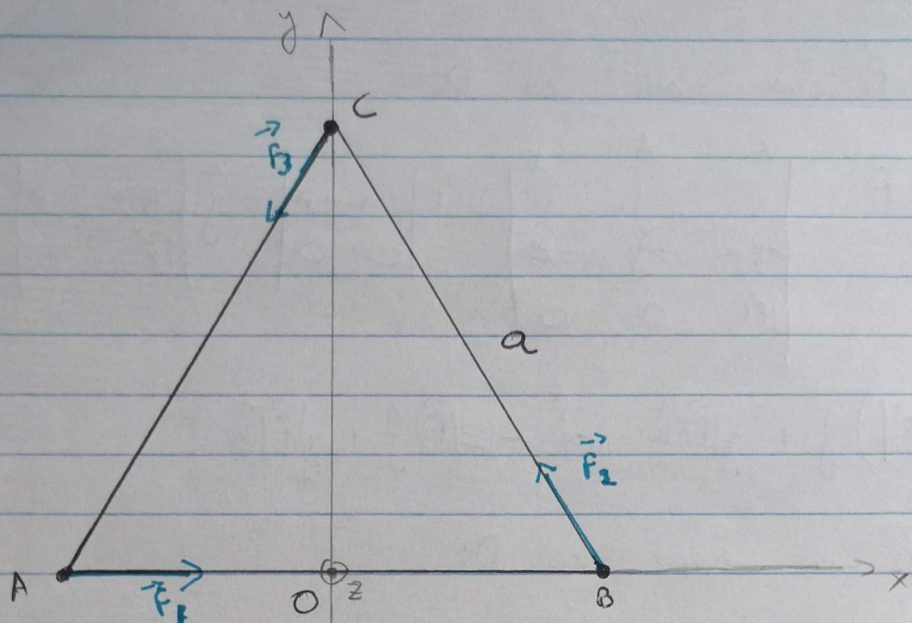 y
C
F₃
a
F₂
A
F₁
O
z
B
x